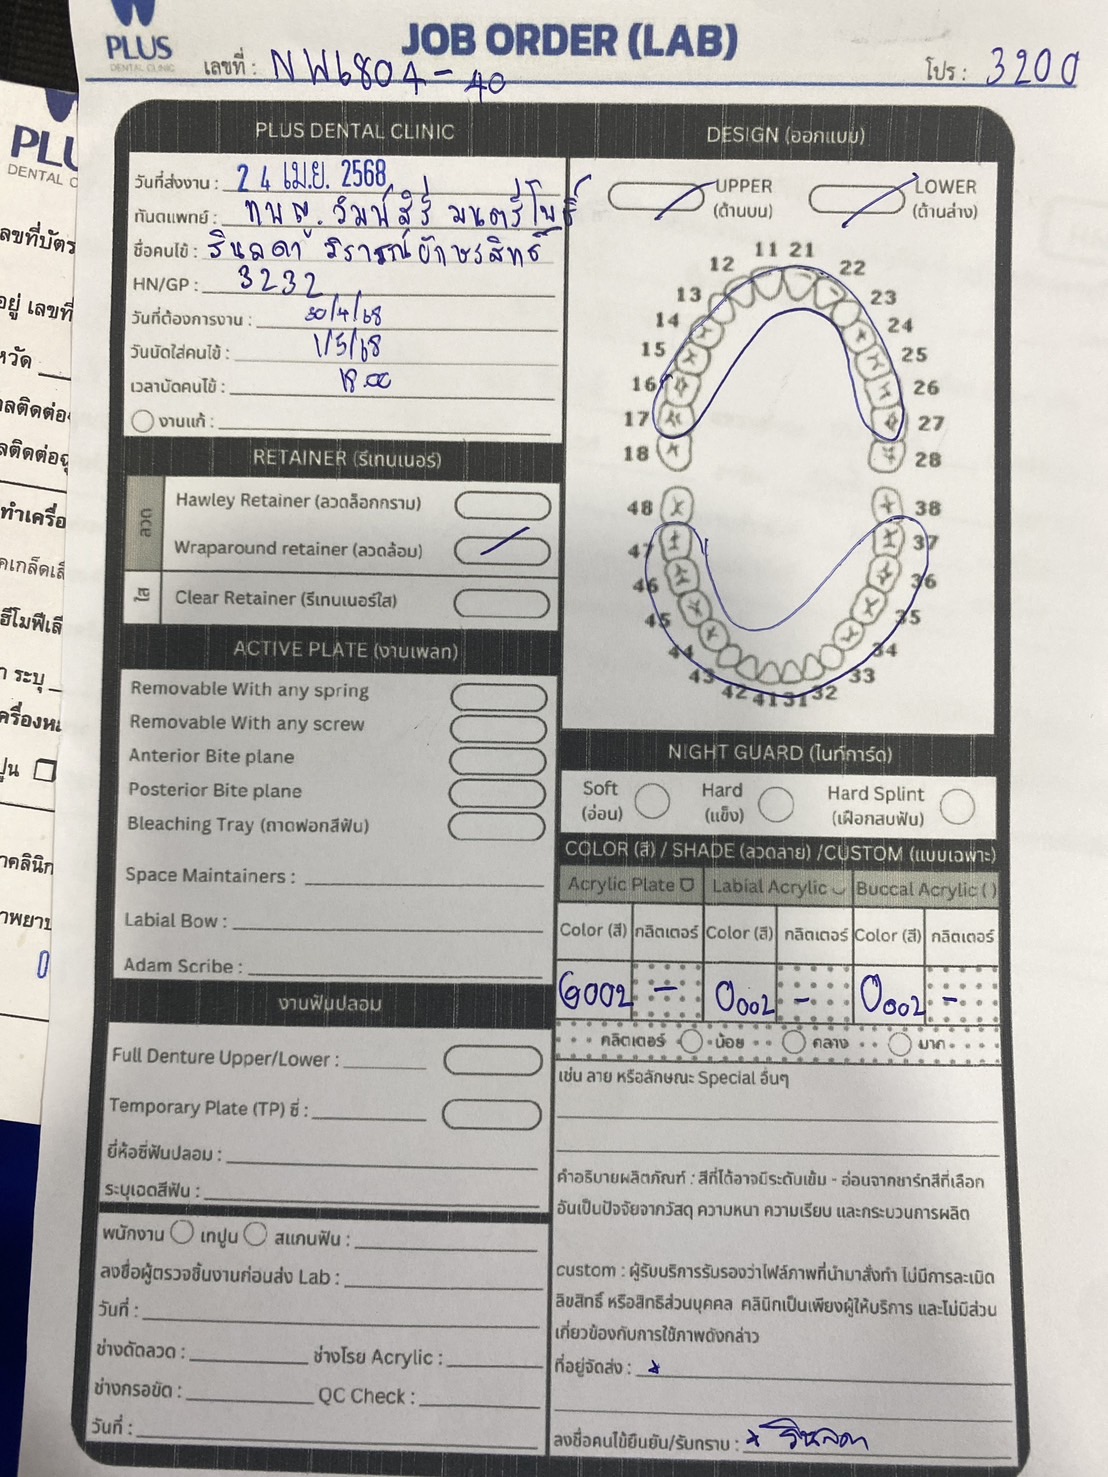 PLUS
DENTAL CLINIC
JOB ORDER (LAB)
เลขที่ : NW6804-40
โปร : 3200
PLUS DENTAL CLINIC
วันที่ส่งงาน : 24 เม.ย. 2568
ทันตแพทย์ : ทพญ. วิมพ์สิริ มนตรีโพธิ์
ชื่อคนไข้ : รินลดา
HN/GP : 3232
วันที่ต้องการงาน : 30/4/68
วันนัดใส่คนไข้ : 1/5/68
เวลานัดคนไข้ : 18.00
งานแก้ :
RETAINER (รีเทนเนอร์)
ลวด
Hawley Retainer (ลวดล็อกกราม)
Wraparound retainer (ลวดล้อม)
ใส
Clear Retainer (รีเทนเนอร์ใส)
ACTIVE PLATE (งานเพลท)
Removable With any spring
Removable With any screw
Anterior Bite plane
Posterior Bite plane
Bleaching Tray (ถาดฟอกสีฟัน)
Space Maintainers :
Labial Bow :
Adam Scribe :
งานฟันปลอม
Full Denture Upper/Lower :
Temporary Plate (TP) ซี่ :
ยี่ห้อซี่ฟันปลอม :
ระบุเฉดสีฟัน :
พนักงาน เทปูน สแกนฟัน :
ลงชื่อผู้ตรวจชิ้นงานก่อนส่ง Lab :
วันที่ :
ช่างดัดลวด : ช่างโรย Acrylic :
ช่างกรอขัด : QC Check :
วันที่ :
DESIGN (ออกแบบ)
UPPER (ด้านบน)
LOWER (ด้านล่าง)
11 21
12 22
13 23
14 24
15 25
16 26
17 27
18 28
48 38
47 37
46 36
45 35
44 34
43 33
42 41 31 32
NIGHT GUARD (ไนท์การ์ด)
Soft (อ่อน)
Hard (แข็ง)
Hard Splint (เฝือกสบฟัน)
COLOR (สี) / SHADE (ลวดลาย) /CUSTOM (แบบเฉพาะ)
Acrylic Plate Labial Acrylic Buccal Acrylic ( )
Color (สี) กลิตเตอร์ Color (สี) กลิตเตอร์ Color (สี) กลิตเตอร์
G002 - O002 - O002 -
กลิตเตอร์ น้อย กลาง มาก
เช่น ลาย หรือลักษณะ Special อื่นๆ
คำอธิบายผลิตภัณฑ์ : สีที่ได้อาจมีระดับเข้ม - อ่อนจากชาร์ทสีที่เลือก
อันเป็นปัจจัยจากวัสดุ ความหนา ความเรียบ และกระบวนการผลิต
custom : ผู้รับบริการรับรองว่าไฟล์ภาพที่นำมาสั่งทำ ไม่มีการละเมิด
ลิขสิทธิ์ หรือสิทธิส่วนบุคคล คลินิกเป็นเพียงผู้ให้บริการ และไม่มีส่วน
เกี่ยวข้องกับการใช้ภาพดังกล่าว
ที่อยู่จัดส่ง :
ลงชื่อคนไข้ยืนยัน/รับทราบ : รินลดา